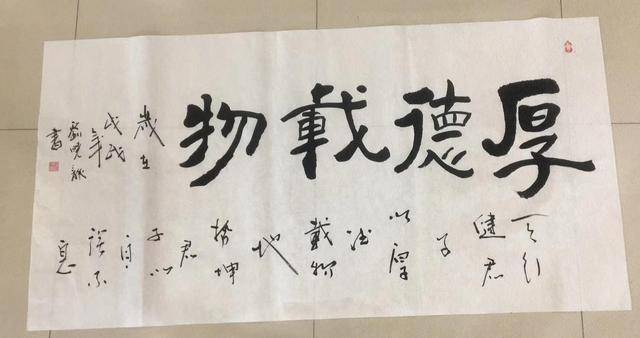 厚德載物
天行
健君
子
以厚
德
載物
地
勢坤
君
子以
自
强不
息
歲在
戊戌
年
書